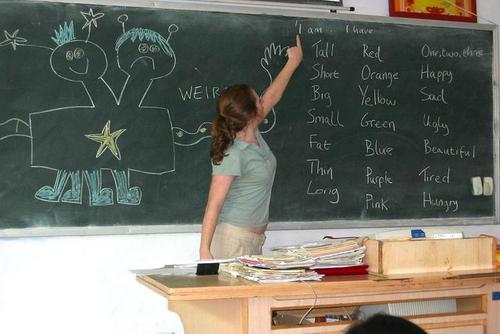 "I am    I have
WEIR
Tall    Red    One, two, three
Short    Orange    Happy
Big    Yellow    Sad
Small    Green    Ugly
Fat    Blue    Beautiful
Thin    Purple    Tired
Long    Pink    Hungry